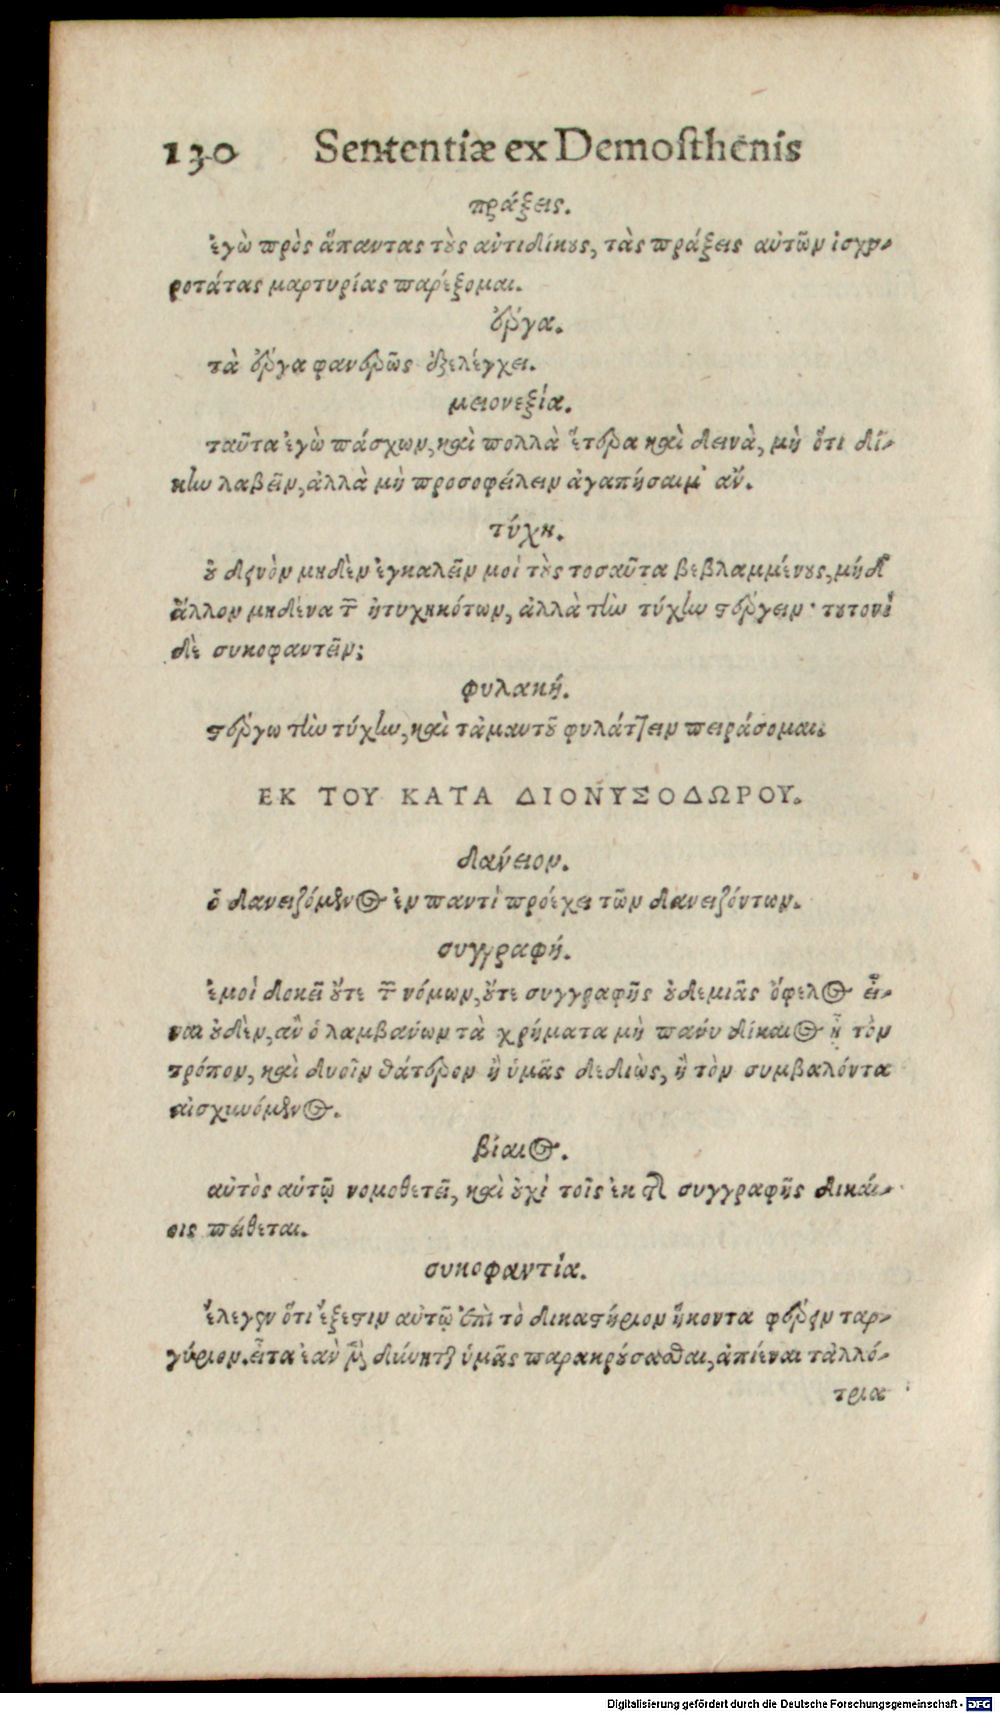 130 Sententiæ ex Demoſthenis
πράξεις.
ἐγὼ πρὸς ἅπαντας τοὺς αὐτιδίκους, τὰς πράξεις αὐτῶν ἰσχυ-
ροτάτας μαρτυρίας παρέξομαι.
ἔργα.
τὰ ἔργα φανερῶς ἐξελέγχει.
μειονεξία.
ταῦτα ἐγὼ πάσχων, καὶ πολλὰ ἕτερα καὶ δεινὰ, μὴ ὅτι δί-
κην λαβεῖν, ἀλλὰ μὴ προσοφείλειν ἀγαπήσαιμ' αὔ.
τύχη.
οὐ δεινὸν μηδὲν ἐγκαλεῖν μοὶ τοὺς τοσαῦτα βεβλαμμένους, μήδ'
ἄλλον μηδένα τῶν ἠτυχηκότων, ἀλλὰ τὴν τύχην στέργειν· τουτονὶ
δὲ συκοφαντεῖν;
φυλακή.
στέργω τὴν τύχην, καὶ τἀμαυτοῦ φυλάττειν πειράσομαι.
ΕΚ ΤΟΥ ΚΑΤΑ ΔΙΟΝΥΣΟΔΩΡΟΥ.
δανείον.
ὁ δανειζόμενος ἐν παντὶ προέχει τῶν δανειζόντων.
συγγραφή.
ἐμοὶ δοκεῖ οὔτε τῶν νόμων, οὔτε συγγραφῆς οὐδεμιᾶς ὄφελος εἶ-
ναι οὐδὲν, αὖ ὁ λαμβανων τὰ χρήματα μὴ πανύ δίκαιος ᾖ τὸν
τρόπον, καὶ δυοῖν θάτερον ἢ ὑμᾶς δεδιὼς, ἢ τὸν συμβαλόντα
αἰσχυνόμενος.
βίαιος.
αὐτὸς αὑτῷ νομοθετεῖ, καὶ οὐχὶ τοῖς ἐκ τῆς συγγραφῆς δικαί-
οις πείθεται.
συκοφαντία.
ἔλεγεν ὅτι ἔξεστιν αὐτῷ ἐπὶ τὸ δικαστήριον ἥκοντα φέρειν ταρ-
γύριον. εἶτα ἐὰν μὲν δύνηται ὑμᾶς παρακρούσασθαι, ἀπιέναι τἀλλό-
τρια
Digitalisierung gefördert durch die Deutsche Forschungsgemeinschaft - DFG